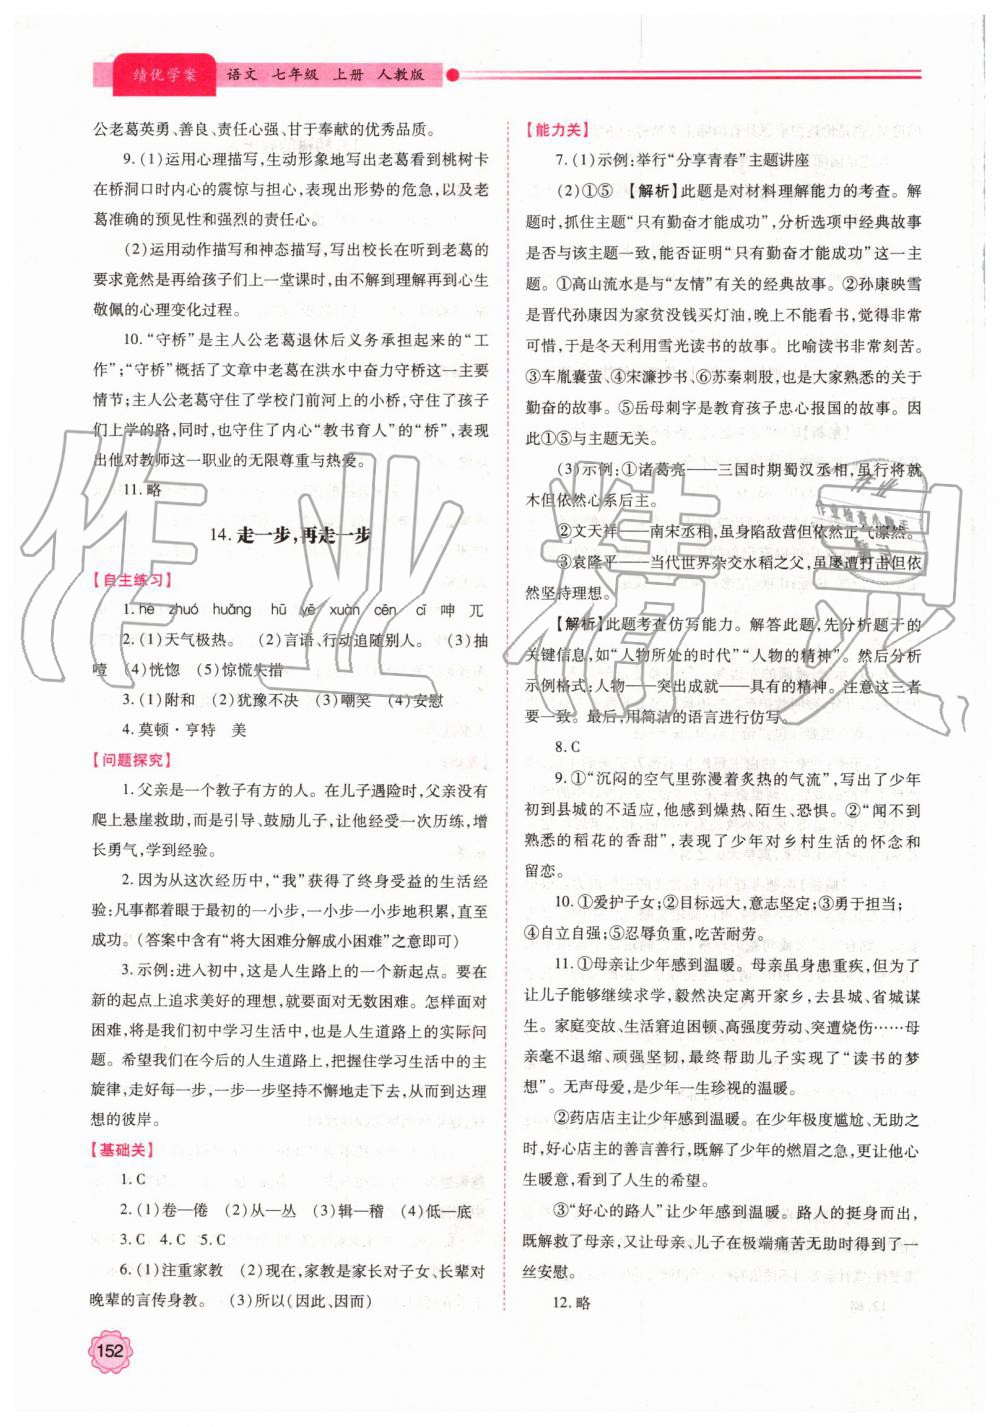 绩优学案
语文 七年级 上册 人教版
公老葛英勇、善良、责任心强、甘于奉献的优秀品质。
9.(1)运用心理描写,生动形象地写出老葛看到桃树卡
在桥洞口时内心的震惊与担心,表现出形势的危急,以及老
葛准确的预见性和强烈的责任心。
(2)运用动作描写和神态描写,写出校长在听到老葛的
要求竟然是再给孩子们上一堂课时,由不解到理解再到心生
敬佩的心理变化过程。
10.“守桥”是主人公老葛退休后义务承担起来的“工
作”;“守桥”概括了文章中老葛在洪水中奋力守桥这一主要
情节;主人公老葛守住了学校门前河上的小桥,守住了孩子
们上学的路,同时,也守住了内心“教书育人”的“桥”,表现
出他对教师这一职业的无限尊重与热爱。
11.略
14.走一步,再走一步
【自主练习】
1.hè zhuó huǎng hū yē xuàn cēn cī 呻 兀
2.(1)天气极热。 (2)言语、行动追随别人。 (3)抽
噎 (4)恍惚 (5)惊慌失措
3.(1)附和 (2)犹豫不决 (3)嘲笑 (4)安慰
4.莫顿·亨特 美
【问题探究】
1.父亲是一个教子有方的人。在儿子遇险时,父亲没有
爬上悬崖救助,而是引导、鼓励儿子,让他经受一次历练,增
长勇气,学到经验。
2.因为从这次经历中,“我”获得了终身受益的生活经
验:凡事都着眼于最初的一小步,一小步一小步地积累,直至
成功。(答案中含有“将大困难分解成小困难”之意即可)
3.示例:进入初中,这是人生路上的一个新起点。要在
新的起点上追求美好的理想,就要面对无数困难。怎样面对
困难,将是我们初中学习生活中,也是人生道路上的实际问
题。希望我们在今后的人生道路上,把握住学习生活中的主
旋律,走好每一步,一步一步坚持不懈地走下去,从而到达理
想的彼岸。
【基础关】
1.C
2.(1)卷—倦 (2)从—丛 (3)辑—稽 (4)低—底
3.C 4.C 5.C
6.(1)注重家教 (2)现在,家教是家长对子女、长辈对
晚辈的言传身教。 (3)所以(因此、因而)
152
【能力关】
7.(1)示例:举行“分享青春”主题讲座
(2)①⑤ 【解析】此题是对材料理解能力的考查。解
题时,抓住主题“只有勤奋才能成功”,分析选项中经典故事
是否与该主题一致,能否证明“只有勤奋才能成功”这一主
题。①高山流水是与“友情”有关的经典故事。②孙康映雪
是晋代孙康因为家贫没钱买灯油,晚上不能看书,觉得非常
可惜,于是冬天利用雪光读书的故事。比喻读书非常刻苦。
③车胤囊萤、④宋濂抄书、⑥苏秦刺股,也是大家熟悉的关于
勤奋的故事。⑤岳母刺字是教育孩子忠心报国的故事。因
此①⑤与主题无关。
(3)示例:①诸葛亮——三国时期蜀汉丞相,虽行将就
木但依然心系后主。
②文天祥——南宋丞相,虽身陷敌营但依然正气凛然。
③袁隆平——当代世界杂交水稻之父,虽屡遭打击但依
然坚持理想。
【解析】此题考查仿写能力。解答此题,先分析题干的
关键信息,如“人物所处的时代”“人物的精神”。然后分析
示例格式:人物——突出成就——具有的精神。注意这三者
要一致。最后,用简洁的语言进行仿写。
8.C
9.①“沉闷的空气里弥漫着炙热的气流”,写出了少年
初到县城的不适应,他感到燥热、陌生、恐惧。②“闻不到
熟悉的稻花的香甜”,表现了少年对乡村生活的怀念和
留恋。
10.①爱护子女;②目标远大,意志坚定;③勇于担当;
④自立自强;⑤忍辱负重,吃苦耐劳。
11.①母亲让少年感到温暖。母亲虽身患重疾,但为了
让儿子能够继续求学,毅然决定离开家乡,去县城、省城谋
生。家庭变故、生活窘迫困顿、高强度劳动、突遭烧伤……母
亲毫不退缩、顽强坚韧,最终帮助儿子实现了“读书的梦
想”。无声母爱,是少年一生珍视的温暖。
②药店店主让少年感到温暖。在少年极度尴尬、无助之
时,好心店主的善言善行,既解了少年的燃眉之急,更让他心
生暖意,看到了人生的希望。
③“好心的路人”让少年感到温暖。路人的挺身而出,
既解救了母亲,又让母亲、儿子在极端痛苦无助时得到了一
丝安慰。
12.略
作业精灵